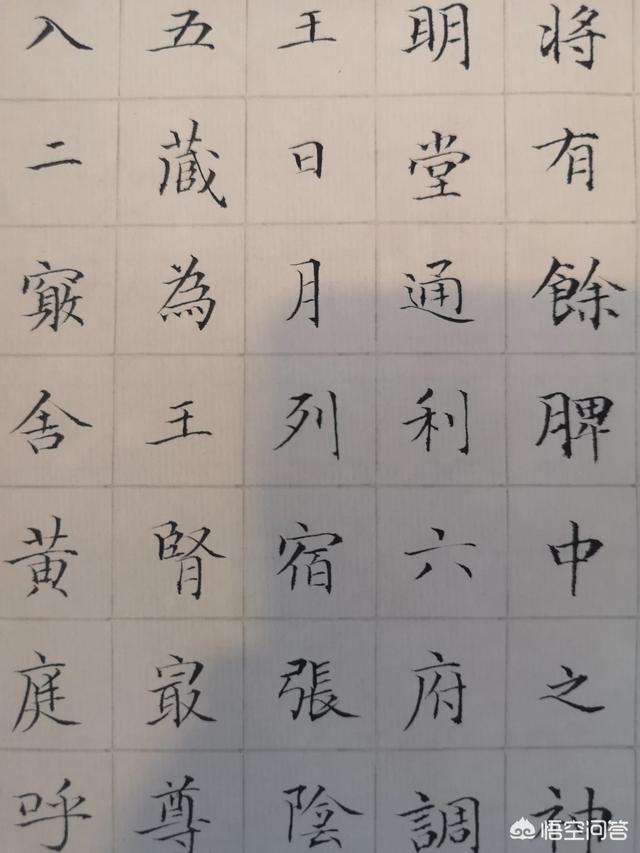 将有餘脾中之神
明堂通利六府調
王日月列宿張陰
五藏為王腎㝡尊
入二竅舍黄庭呼
悟空问答